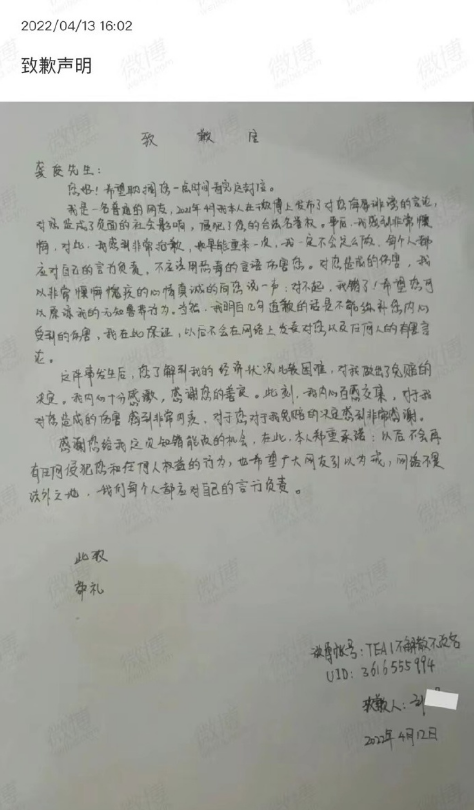 2022/04/13 16:02
致歉声明
致 歉 信
龚俊先生:
您好!希望耽搁您一点时间看完这封信。
我是一名普通的网友,2021年4月我本人在微博上发布了对您侮辱诽谤的言论,
对您造成了负面的社会影响,侵犯了您的合法名誉权。事后,我感到非常懊
悔,对此,我感到非常抱歉,如果能重来一次,我一定不会这么做。每个人都
应对自己的言行负责,不应该用恶毒的言语伤害您。对您造成的伤害,我
以非常懊悔愧疚的心情真诚的向您说一声:对不起,我错了!希望您可
以原谅我的无知鲁莽行为。当然,我明白几句道歉的话是不能弥补您内心
受到的伤害,我在此保证,以后不会在网络上发表对您以及任何人的有害言
论。
这件事发生后,您了解到我的经济状况比较困难,对我做出了免赔的
决定。我内心十分感激,感谢您的善良。此刻,我内心百感交集,对于我
对您造成的伤害感到非常内疚,对于您对于我免赔的决定感到非常感谢。
感谢您给我这次知错能改的机会,在此,本人郑重承诺:以后不会再
有任何侵犯您和任何人权益的行为,也希望广大网友引以为戒,网络不是
法外之地,我们每个人都应对自己的言行负责。
此致
敬礼
微博账号:TEA1不解散不改名
UID:3616555994
致歉人:
2022年4月12日
微博